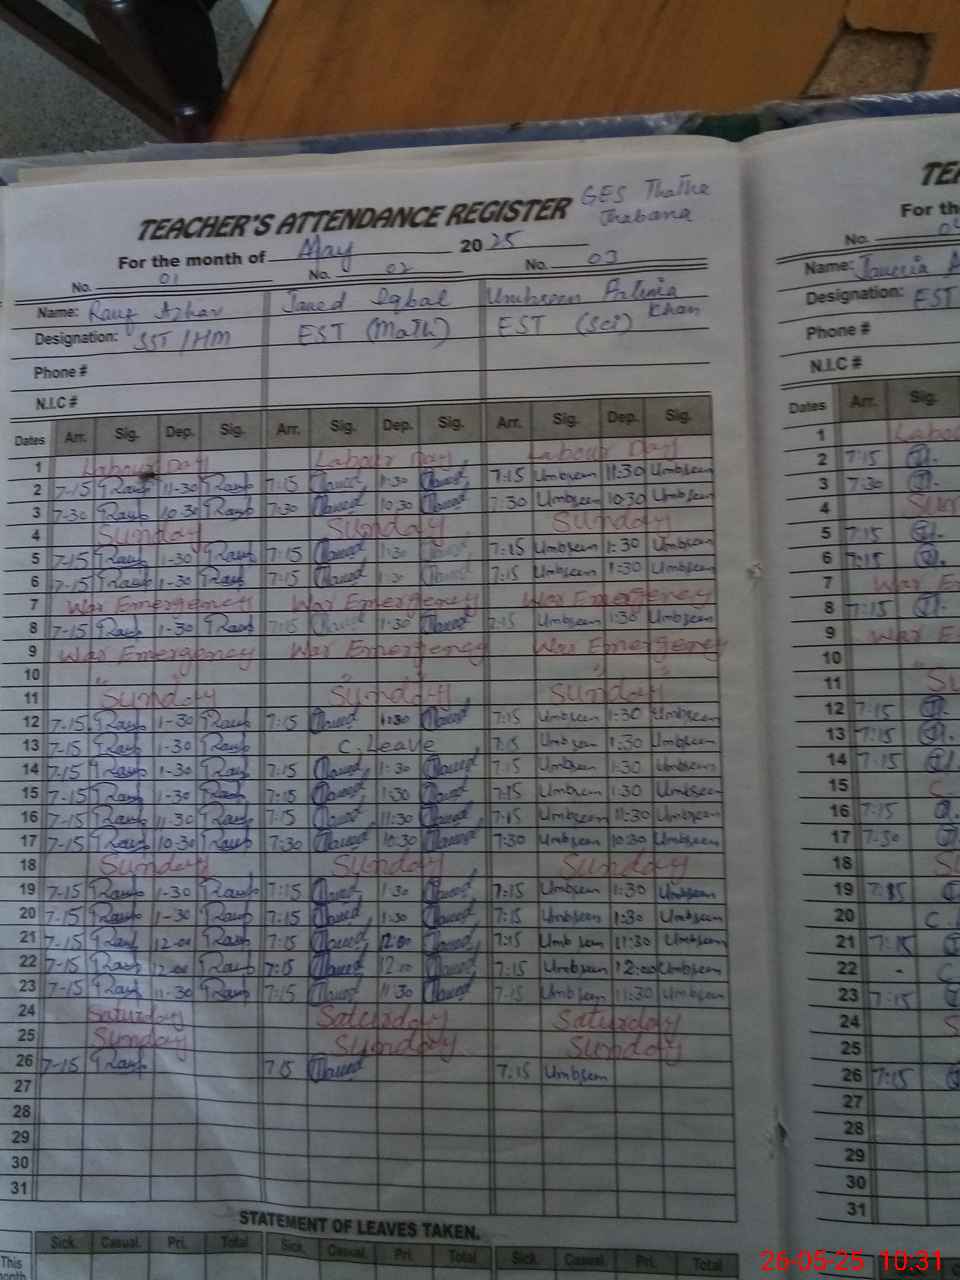 GES Thatha
Thabana
TEACHER'S ATTENDANCE REGISTER
For the month of May 2025
No. 01 No. 02 No. 03
Name: Rauf Azhar Javed Iqbal Umbreen Fatima Khan
Designation: SST/HM EST (Math) EST (Sci)
Phone #
N.I.C #
Dates Arr. Sig. Dep. Sig. Arr. Sig. Dep. Sig. Arr. Sig. Dep. Sig.
1 Labour Day Labour Day Labour Day
2 7-15 Rauf 11-30 Rauf 7:15 Javed 11:30 Javed 7:15 Umbreen 11:30 Umbreen
3 7-30 Rauf 10-30 Rauf 7:30 Javed 10:30 Javed 7:30 Umbreen 10:30 Umbreen
4 Sunday Sunday Sunday
5 7-15 Rauf 1-30 Rauf 7:15 Javed 1:30 Javed 7:15 Umbreen 1:30 Umbreen
6 7-15 Rauf 1-30 Rauf 7:15 Javed 1:30 Javed 7:15 Umbreen 1:30 Umbreen
7 War Emergency War Emergency War Emergency
8 7-15 Rauf 1-30 Rauf 7:15 Javed 1:30 Javed 7:15 Umbreen 1:30 Umbreen
9 War Emergency War Emergency War Emergency
10 " " " " " "
11 Sunday Sunday Sunday
12 7-15 Rauf 1-30 Rauf 7:15 Javed 1:30 Javed 7:15 Umbreen 1:30 Umbreen
13 7-15 Rauf 1-30 Rauf C. Leave 7:15 Umbreen 1:30 Umbreen
14 7-15 Rauf 1-30 Rauf 7:15 Javed 1:30 Javed 7:15 Umbreen 1:30 Umbreen
15 7-15 Rauf 1-30 Rauf 7:15 Javed 1:30 Javed 7:15 Umbreen 1:30 Umbreen
16 7-15 Rauf 11-30 Rauf 7:15 Javed 11:30 Javed 7:15 Umbreen 11:30 Umbreen
17 7-15 Rauf 10-30 Rauf 7:30 Javed 10:30 Javed 7:30 Umbreen 10:30 Umbreen
18 Sunday Sunday Sunday
19 7-15 Rauf 1-30 Rauf 7:15 Javed 1:30 Javed 7:15 Umbreen 1:30 Umbreen
20 7-15 Rauf 1-30 Rauf 7:15 Javed 1:30 Javed 7:15 Umbreen 1:30 Umbreen
21 7-15 Rauf 12-00 Rauf 7:15 Javed 12:00 Javed 7:15 Umbreen 11:30 Umbreen
22 7-15 Rauf 12-00 Rauf 7:15 Javed 12:00 Javed 7:15 Umbreen 12:00 Umbreen
23 7-15 Rauf 11-30 Rauf 7:15 Javed 11:30 Javed 7:15 Umbreen 11:30 Umbreen
24 Saturday Saturday Saturday
25 Sunday Sunday Sunday
26 7-15 Rauf 7:15 Javed 7:15 Umbreen
27
28
29
30
31
STATEMENT OF LEAVES TAKEN.
Sick. Casual. Pri. Total Sick. Casual. Pri. Total Sick. Casual. Pri. Total
This
month
TEA
For th
No. 04
Name: Javeria A
Designation: EST
Phone #
N.I.C #
Dates Arr. Sig.
1 Labo
2 7:15
3 7:30
4 Sun
5 7:15
6 7:15
7 War E
8 7:15
9 War E
10
11 Su
12 7:15
13 7:15
14 7:15
15 C.
16 7:15
17 7:30
18 Su
19 7:15
20 C.
21 7:15
22 - C
23 7:15
24 S
25
26 7:15
27
28
29
30
31
26-05-25 10:31